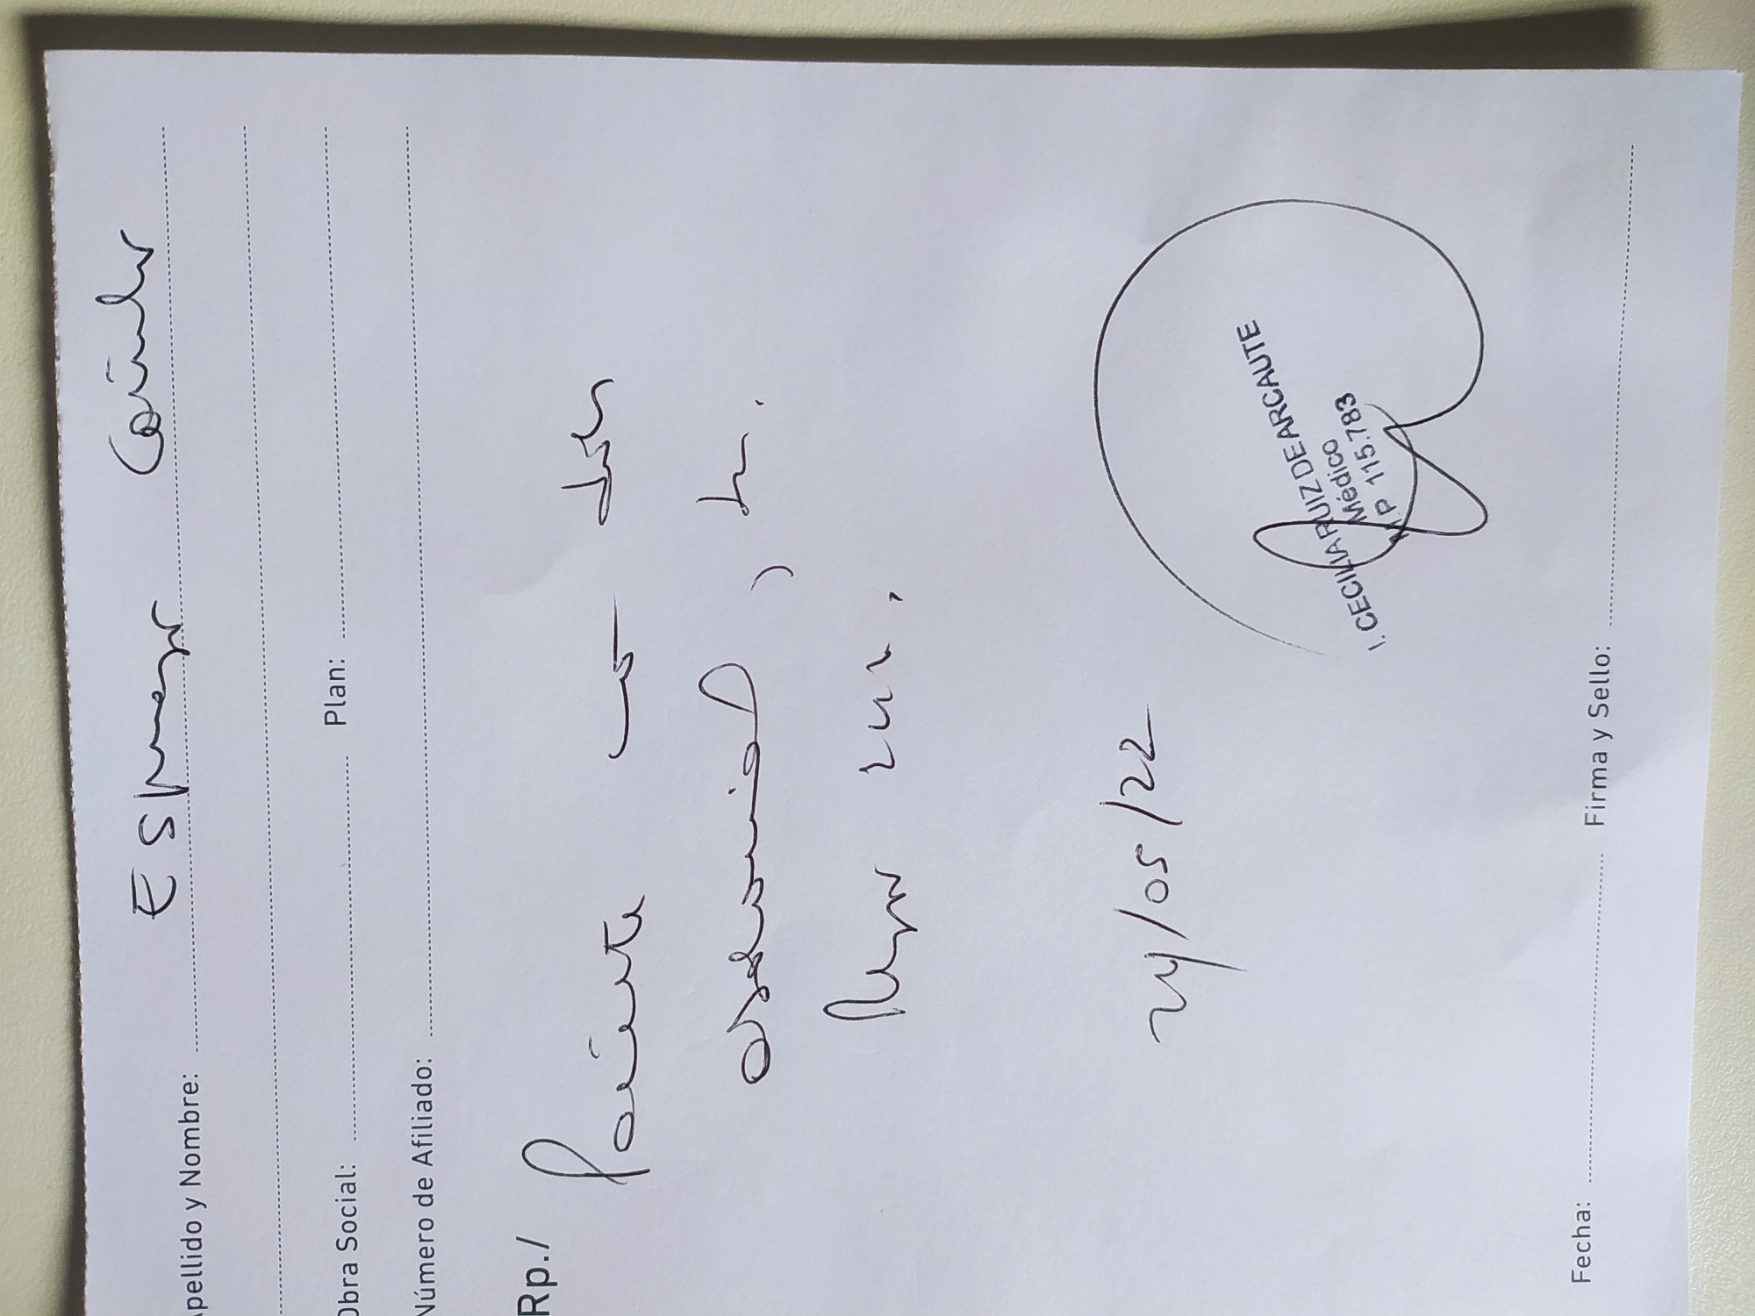 Apellido y Nombre: Espinoza Camila
Obra Social: Plan:
Número de Afiliado:
Rp./ Paciente con dolor
abdominal,
Reposo 24 hs.
24/05/22
I. CECILIA RUIZ DE ARCAUTE
Médico
M.P 115.783
Fecha: Firma y Sello: